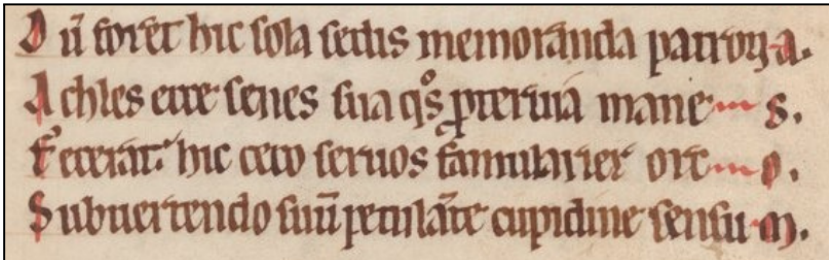 D ū foret hic sola sedis memoranda patron a.
A chles ecce senes sua qͦs ꝓteruia mane s.
F ecerat hic ceco seruos famularier ort o.
S ubuertendo suū petulāte cupidine sensu m.